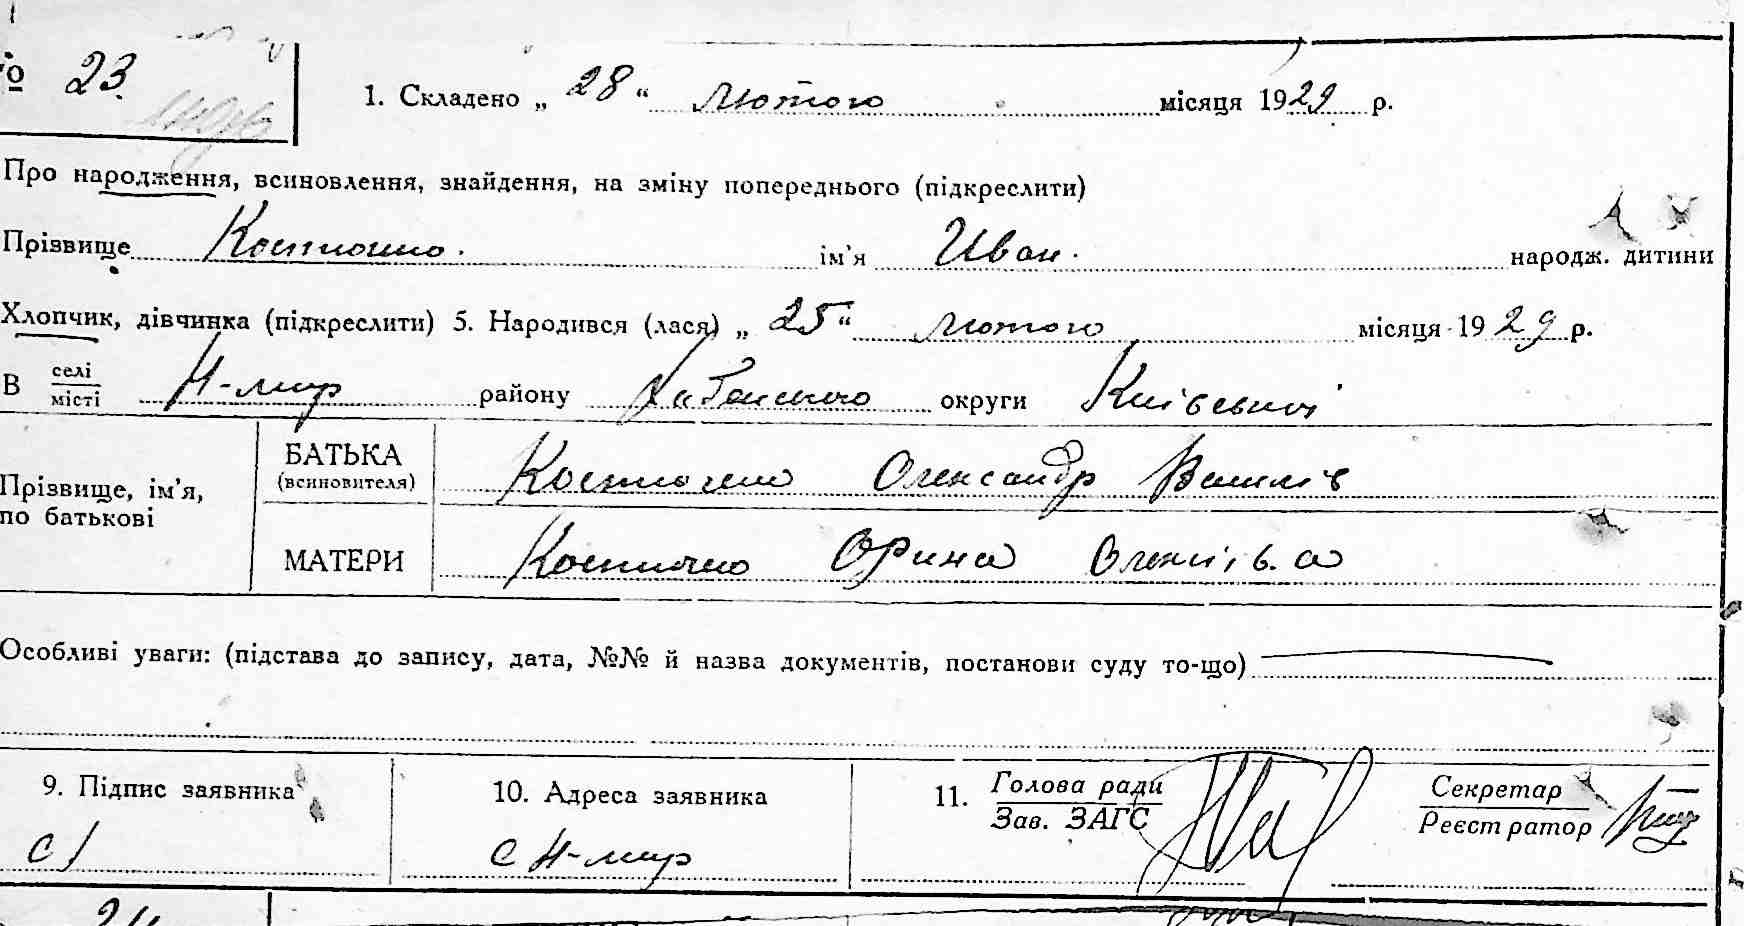 № 23.
1. Складено „ 28 “ лютого місяця 1929 р.
Про народження, всиновлення, знайдення, на зміну попереднього (підкреслити)
Прізвище Костюшко. ім’я Иван. народж. дитини
Хлопчик, дівчинка (підкреслити) 5. Народився (лася) „ 25 “ лютого місяця 1929 р.
В селі місті Н-мир району Хабенського округи Київської
Прізвище, ім’я, по батькові
БАТЬКА (всиновителя) Костюшко Олександр
МАТЕРИ Костюшко Орина
Особливі уваги: (підстава до запису, дата, №№ й назва документів, постанови суду то-що)
9. Підпис заявника
10. Адреса заявника
11. Голова ради
Зав. ЗАГС
Секретар
Реєстратор
с Н-мир